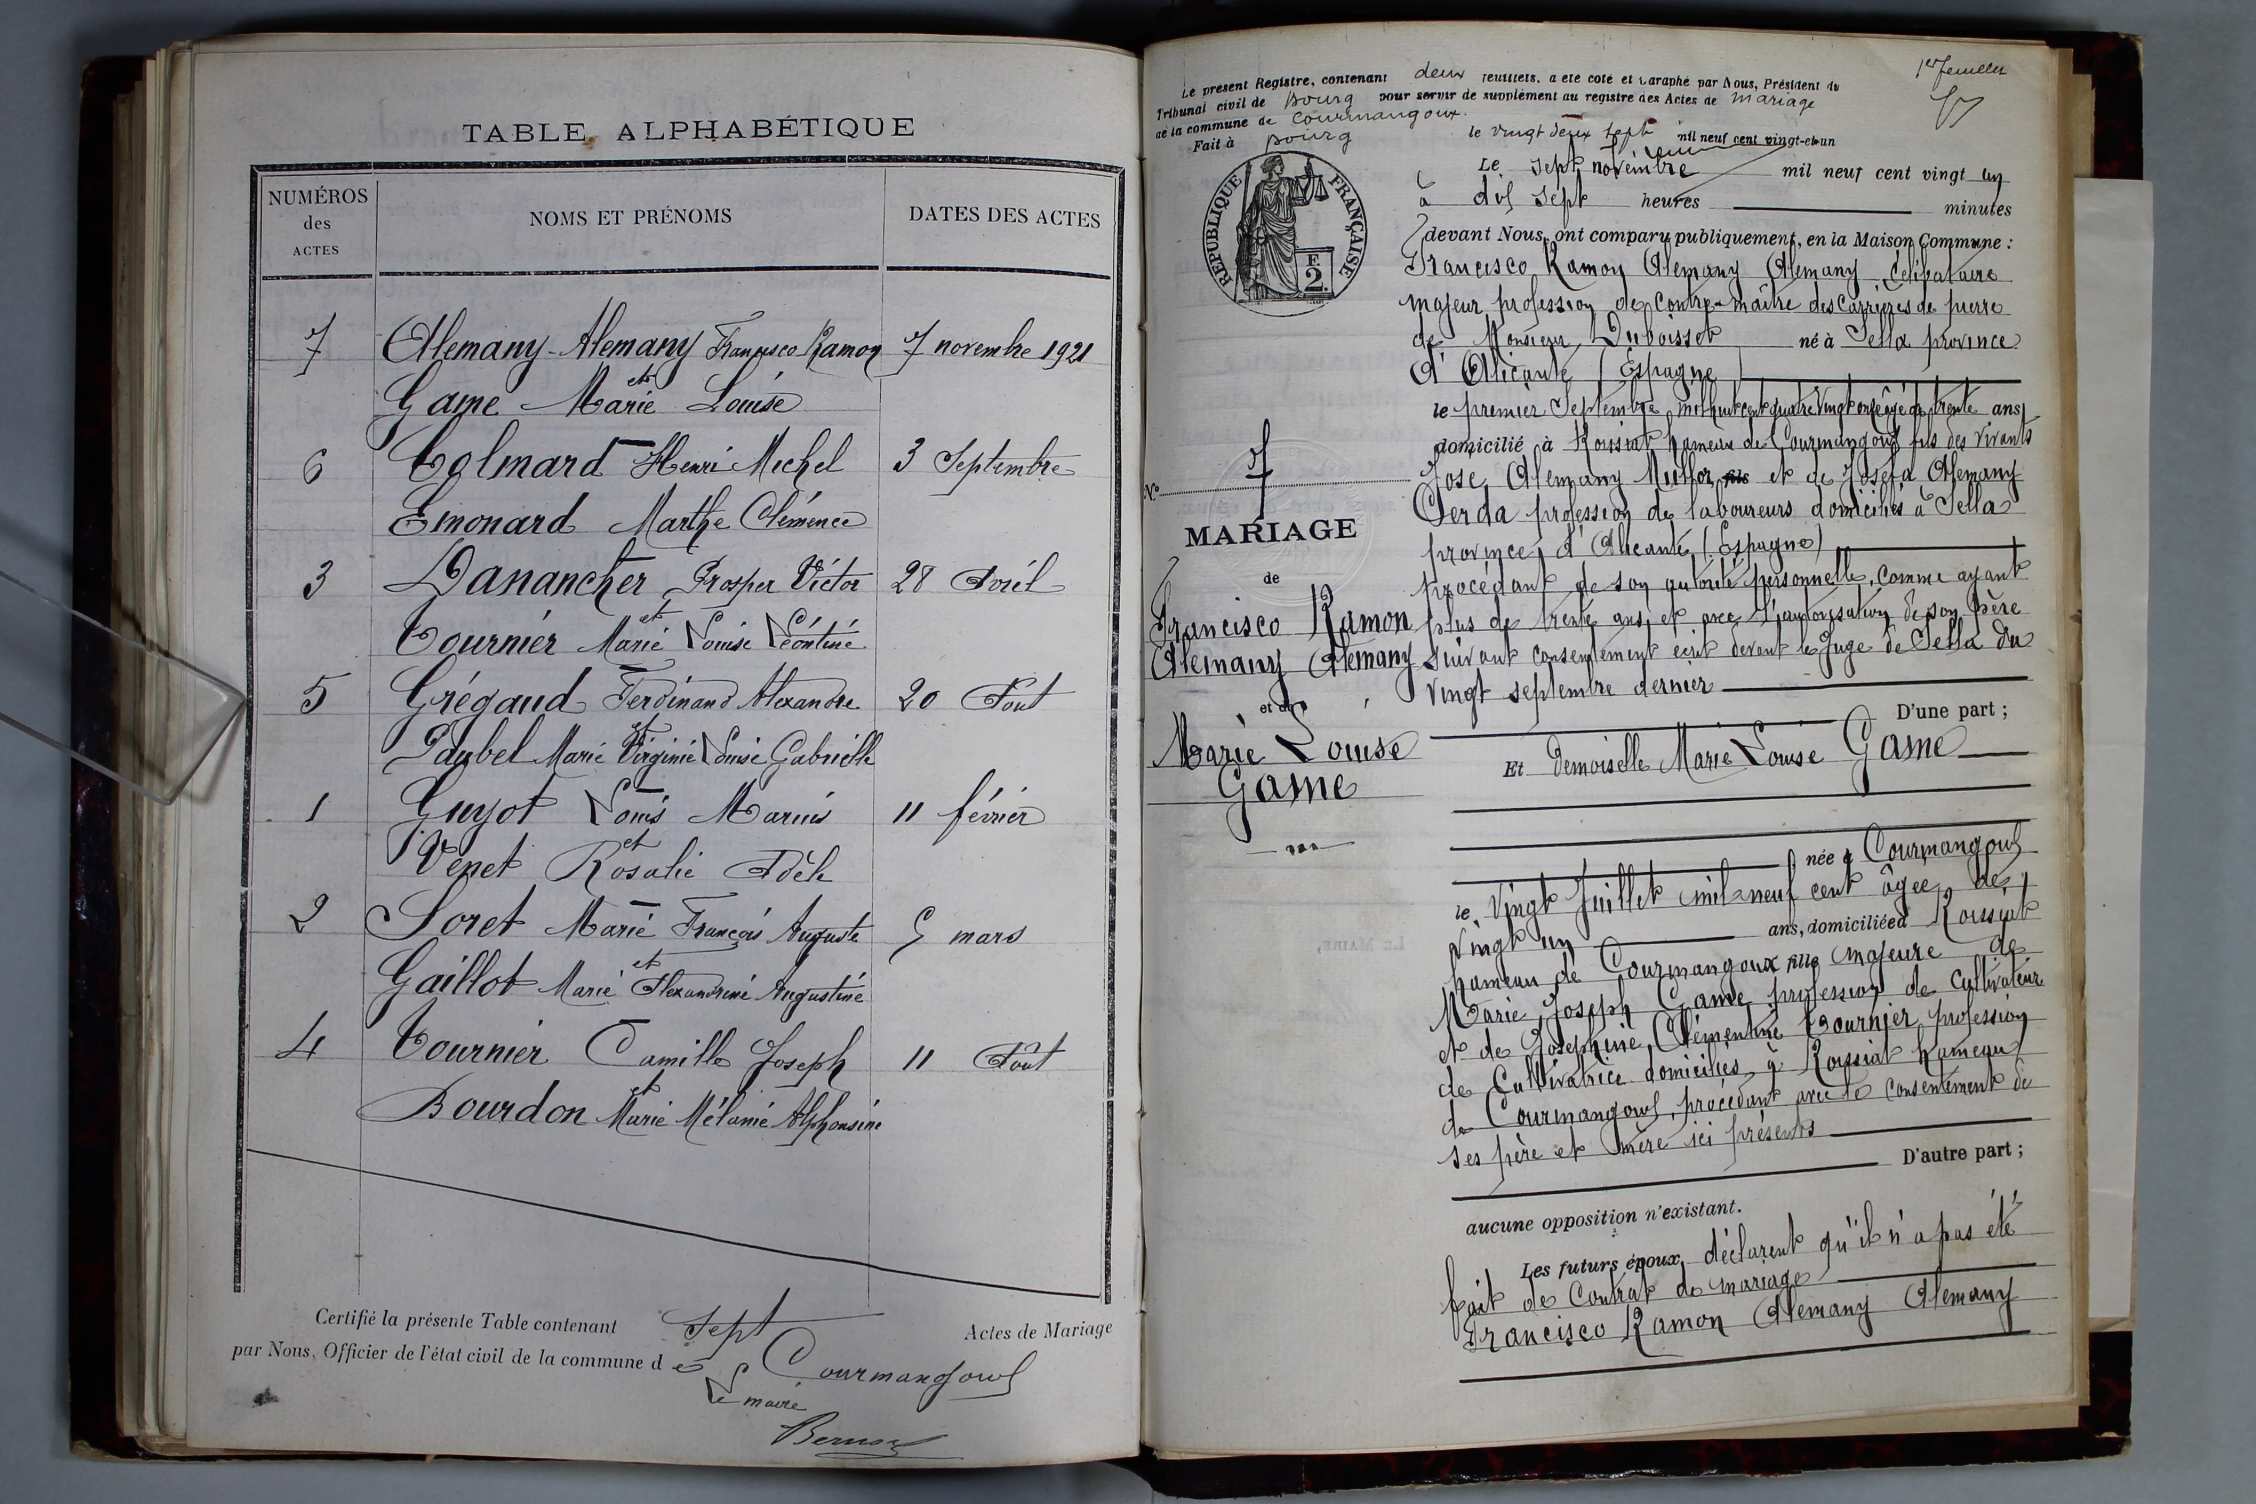 TABLE ALPHABÉTIQUE
NUMÉROS des ACTES
NOMS ET PRÉNOMS
DATES DES ACTES
7 Alemany-Alemany Francisco Ramon 7 novembre 1921
et
Game Marie Louise
6 Colmard Henri Michel 3 Septembre
Emonard Marthe Clémence
3 Danancher Prosper Victor 28 Avril
et
Tournier Marie Louise Léontine
5 Grégaud Ferdinand Alexandre 20 Aout
et
Marie Virginie Louise Gabrielle
1 Guyot Louis Marius 11 février
et
Venet Rosalie Adèle
2 Soret Marie François Auguste mars
et
Gaillot Marie Alexandrine Augustine
4 Tournier Camille Joseph 11 Août
et
Bourdon Marie Mélanie Alphonsine
Certifié la présente Table contenant sept Actes de Mariage
par Nous, Officier de l'état civil de la commune de Courmangoux
Le maire
1er feuillet
Le présent Registre, contenant deux feuillets, a été coté et paraphé par Nous, Président du
Tribunal civil de Bourg pour servir de supplément au registre des Actes de mariage
de la commune de Courmangoux.
Fait à Bourg le vingt deux sept mil neuf cent vingt-et-un
RÉPUBLIQUE FRANÇAISE
F.
2.
Le sept novembre mil neuf cent vingt un
à dix sept heures minutes
devant Nous, ont comparu publiquement, en la Maison Commune :
Francisco Ramon Alemany Alemany célibataire
majeur profession de contre-maître des carrières de pierre
de Monsieur Duboisset né à Sella province
d'Alicante (Espagne)
le premier Septembre mil huit cent quatre vingt onze âgé de trente ans
domicilié à Roissiat hameau de Courmangoux fils des vivants
José Alemany Mullor fils et de Josefa Alemany
Cerda profession de laboureurs domiciliés à Sella
province d'Alicante (Espagne)
procédant de son autorité personnelle, comme ayant
plus de trente ans et avec l'autorisation de son père
suivant consentement écrit devant le Juge de Sella du
vingt septembre dernier
D'une part ;
N° 7
MARIAGE
de
Francisco Ramon
Alemany Alemany
et de
Marie Louise
Game
Et Demoiselle Marie Louise Game
née à Courmangoux
le vingt Juillet mil neuf cent âgée de
vingt un ans, domiciliée à Roissiat
hameau de Courmangoux fille majeure de
Marie Joseph Game profession de cultivateur
et de Joséphine Clémentine Tournier profession
de Cultivatrice domiciliés à Roissiat hameau
de Courmangoux, procédant avec le consentement de
ses père et mère ici présents
D'autre part ;
aucune opposition n'existant.
Les futurs époux déclarent qu'il n'a pas été
fait de contrat de mariage
Francisco Ramon Alemany Alemany